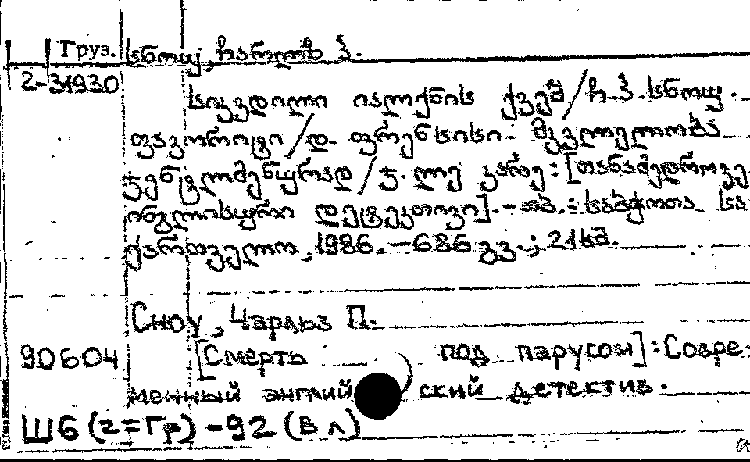 Груз. სნოუ, ჩარლზ პ.
2-31930
სიკვდილი იალქნის ქვეშ / ჩ. პ. სნოუ.
ფავორიტი / დ. ფრენსისი. მკვლელობა
ჯენტლმენურად / ჯ. ლე კარე : [თანამედროვე
ინგლისური დეტექტივი]. – თბ. : საბჭოთა სა
ქართველო, 1986. – 686 გვ. ; 21 სმ.
Сноу, Чарльз П.
90604 [Смерть под парусом] : Совре-
менный английский детектив.
Ш6(2=Гр)-92 (В л)